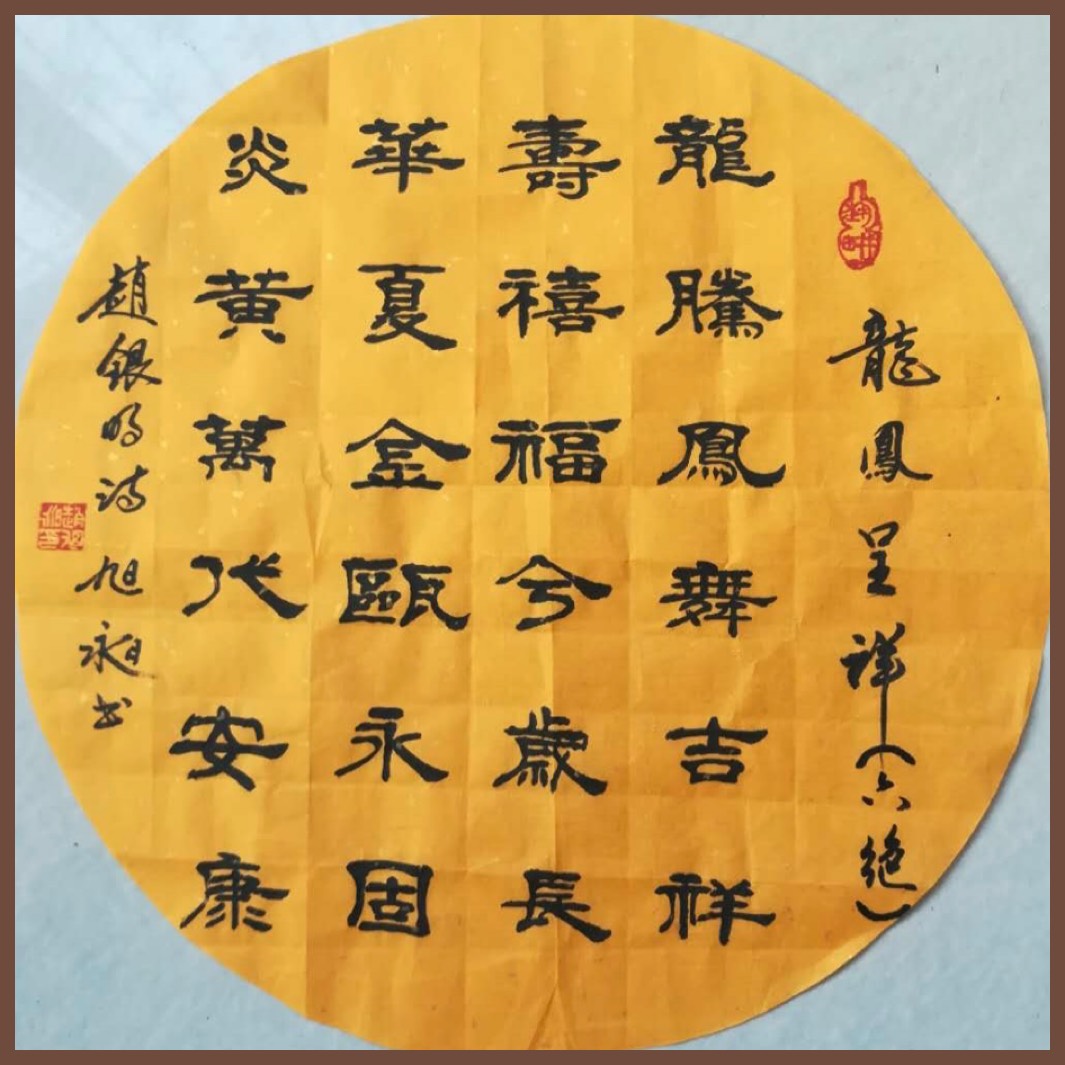 龍鳳呈祥（六絶）
龍騰鳳舞吉祥
壽禧福兮歲長
華夏金甌永固
炎黄萬代安康
趙銀明诗 旭昶书